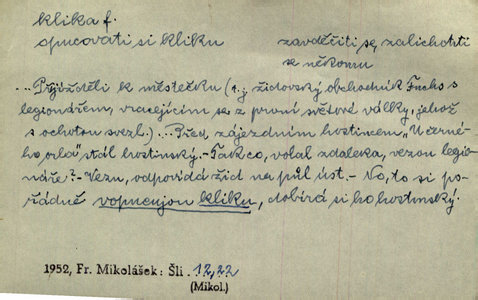 klika f.
opucovati si kliku zavděčiti se, zalichotiti
se někomu
...Přijížděli k městečku (t.j. židovský obchodník Fuchs s
legionářem, vracejícím se z první světové války, jehož
s ochotou svezl.)... Před zájezdním hostincem "U černé-
ho orla" stál hostinský. - Tak co, volal zdaleka, vezou legio-
náře? - Vezu, odpovídá žid na půl úst. - No, to si po-
řádně vopucujou kliku, dobírá si ho hostinský.
1952, Fr. Mikolášek: Šli. 12,22
(Mikol.)